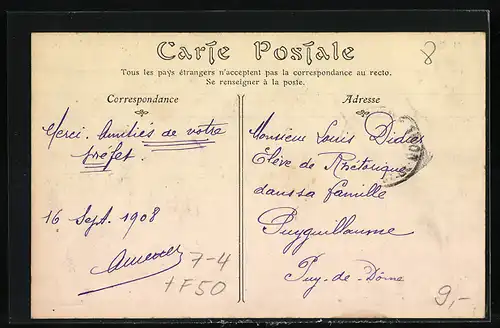 Carte Postale
8
Tous les pays étrangers n'acceptent pas la correspondance au recto.
Se renseigner à la poste.
Correspondance
Merci. Amitiés de votre
préfet.
16 Sept. 1908
7-4
+F50
Adresse
Monsieur Louis Didier
Elève de Rhétorique
dans sa famille
Puyguillaume
Puy-de-Dôme
9,-